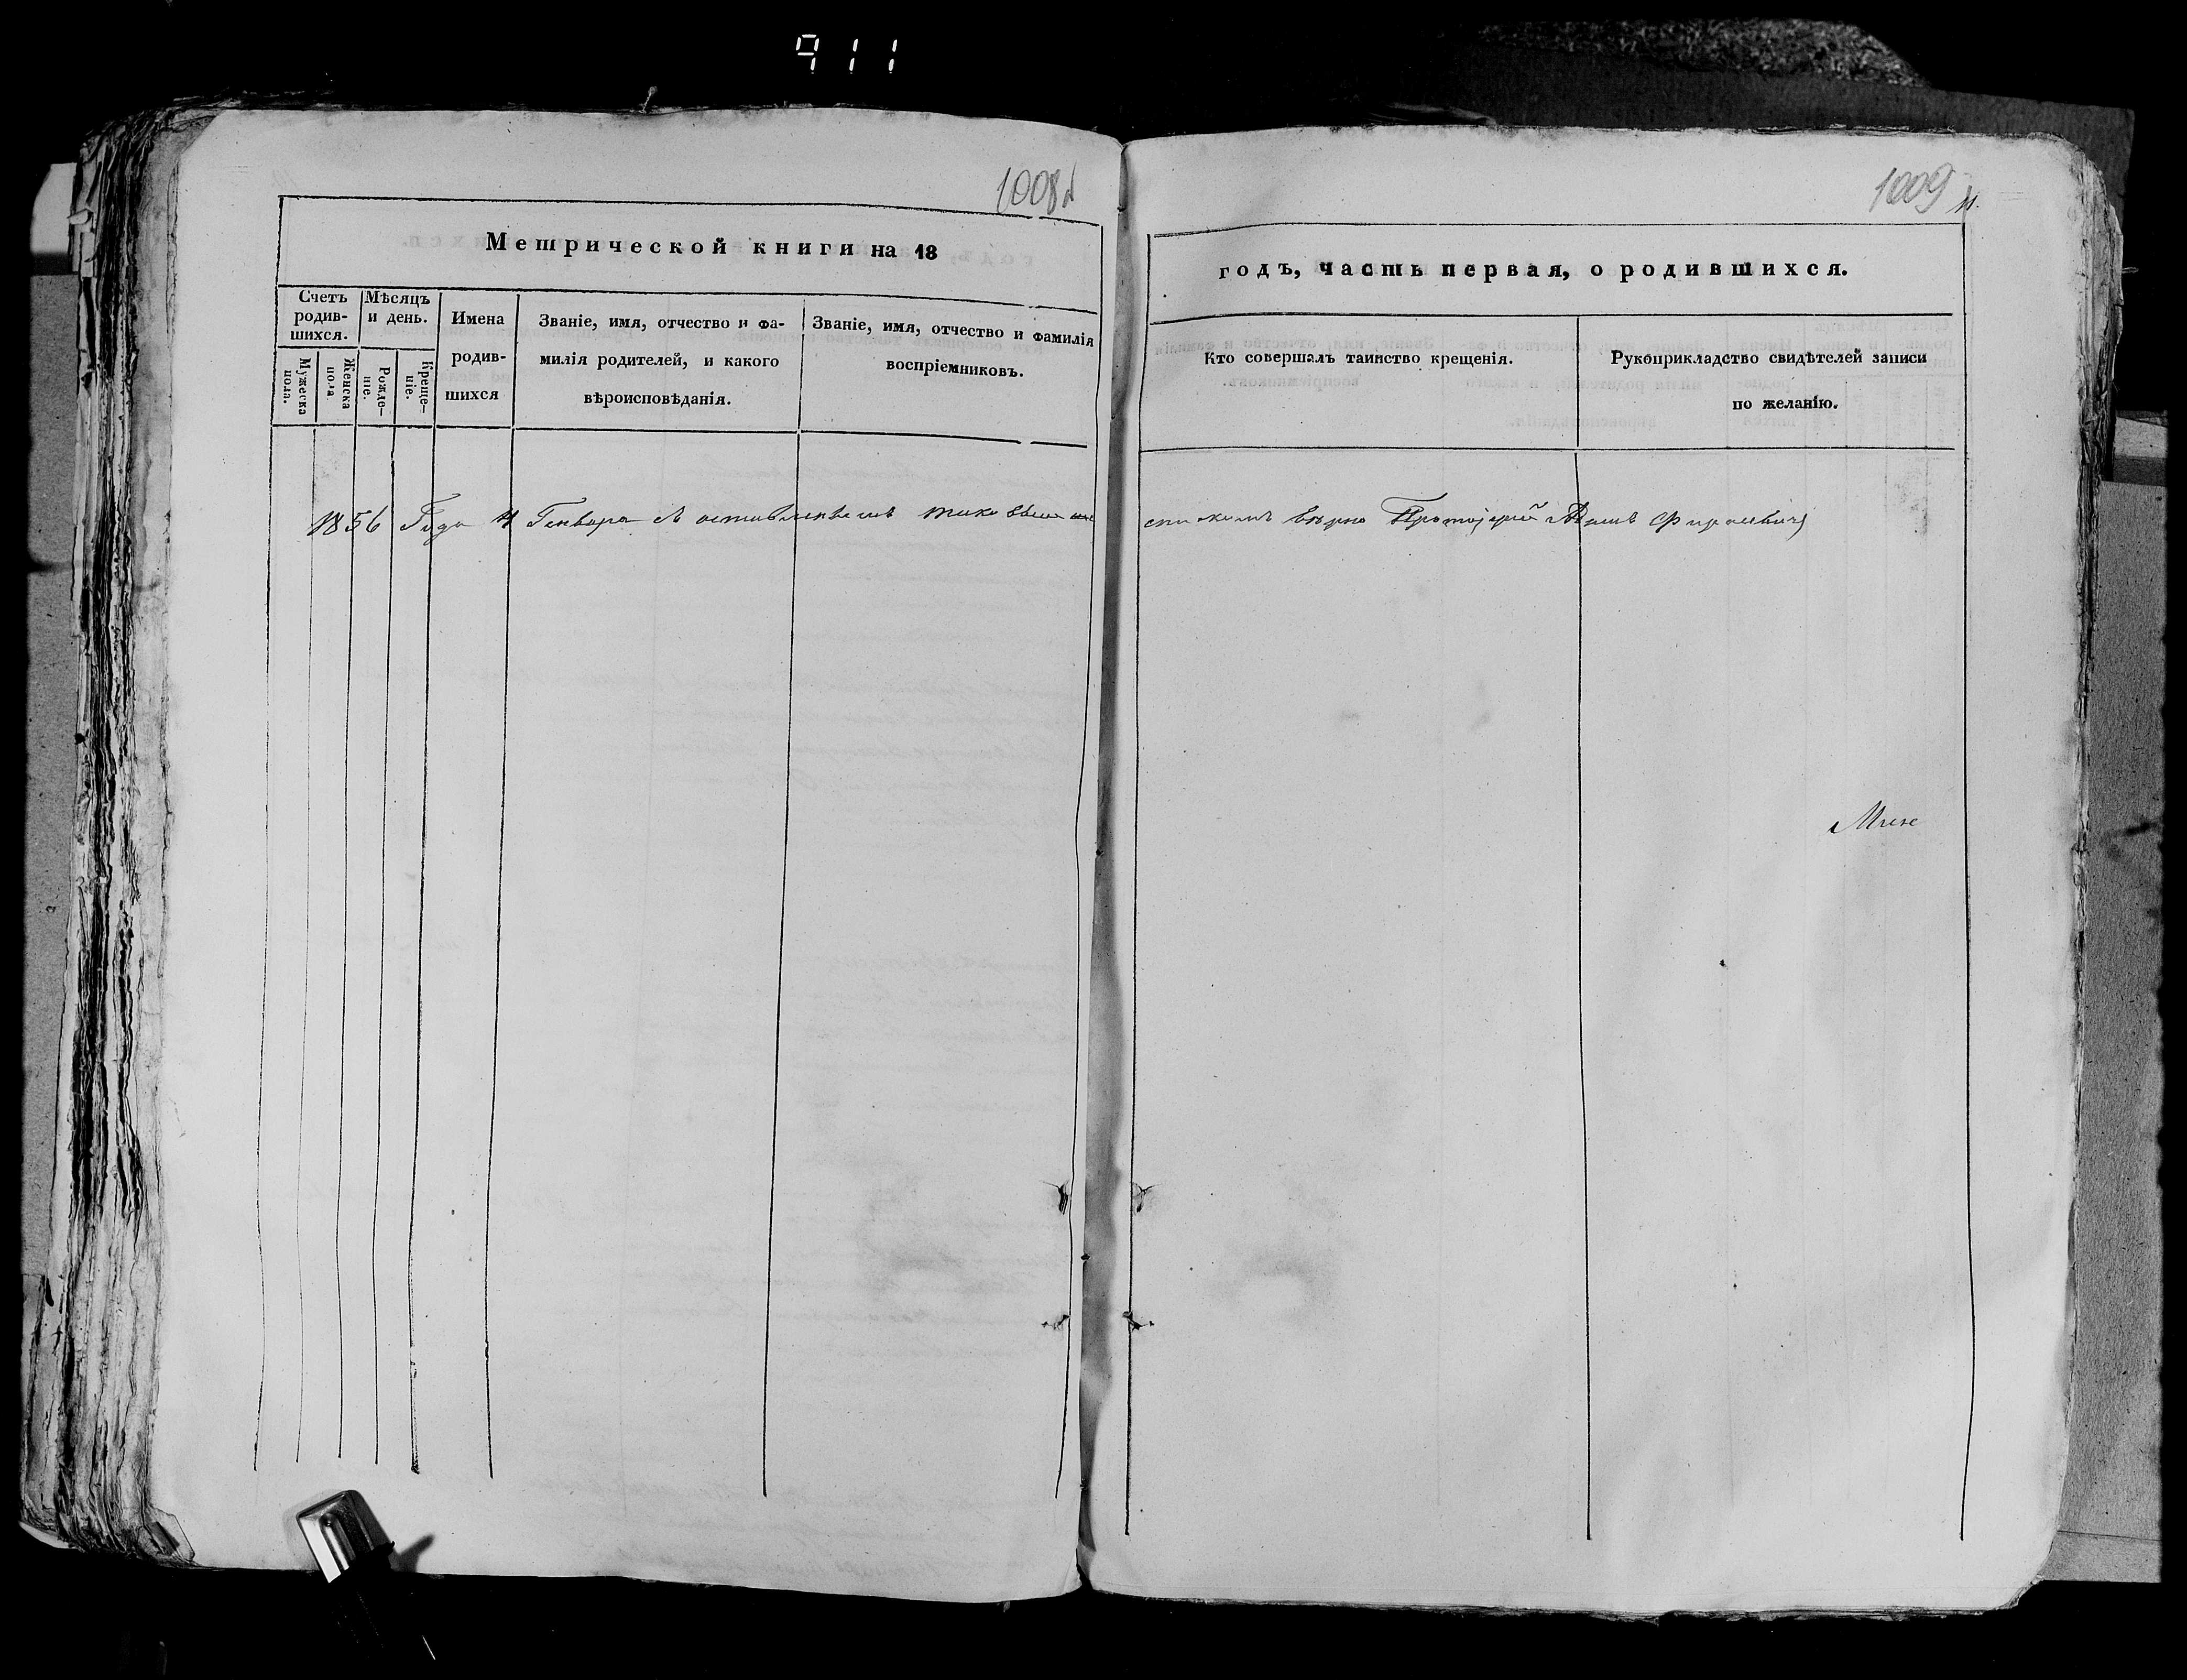 911
1008
Метрической книги на 18
Счетъ родив-шихся.
Мужеска пола.
Женска пола
Мѣсяцъ и день.
Рожде-ніе.
Креще-ніе.
Имена
родив-
шихся
Званіе, имя, отчество и фа-
милія родителей, и какого
вѣроисповѣданія.
Званіе, имя, отчество и фамилія
воспріемниковъ.
1856 Года 4 Генваря съ
1009
годъ, часть первая, о родившихся.
Кто совершалъ таинство крещенія.
Рукоприкладство свидѣтелей записи
по желанію.
вѣрно Протоіерей